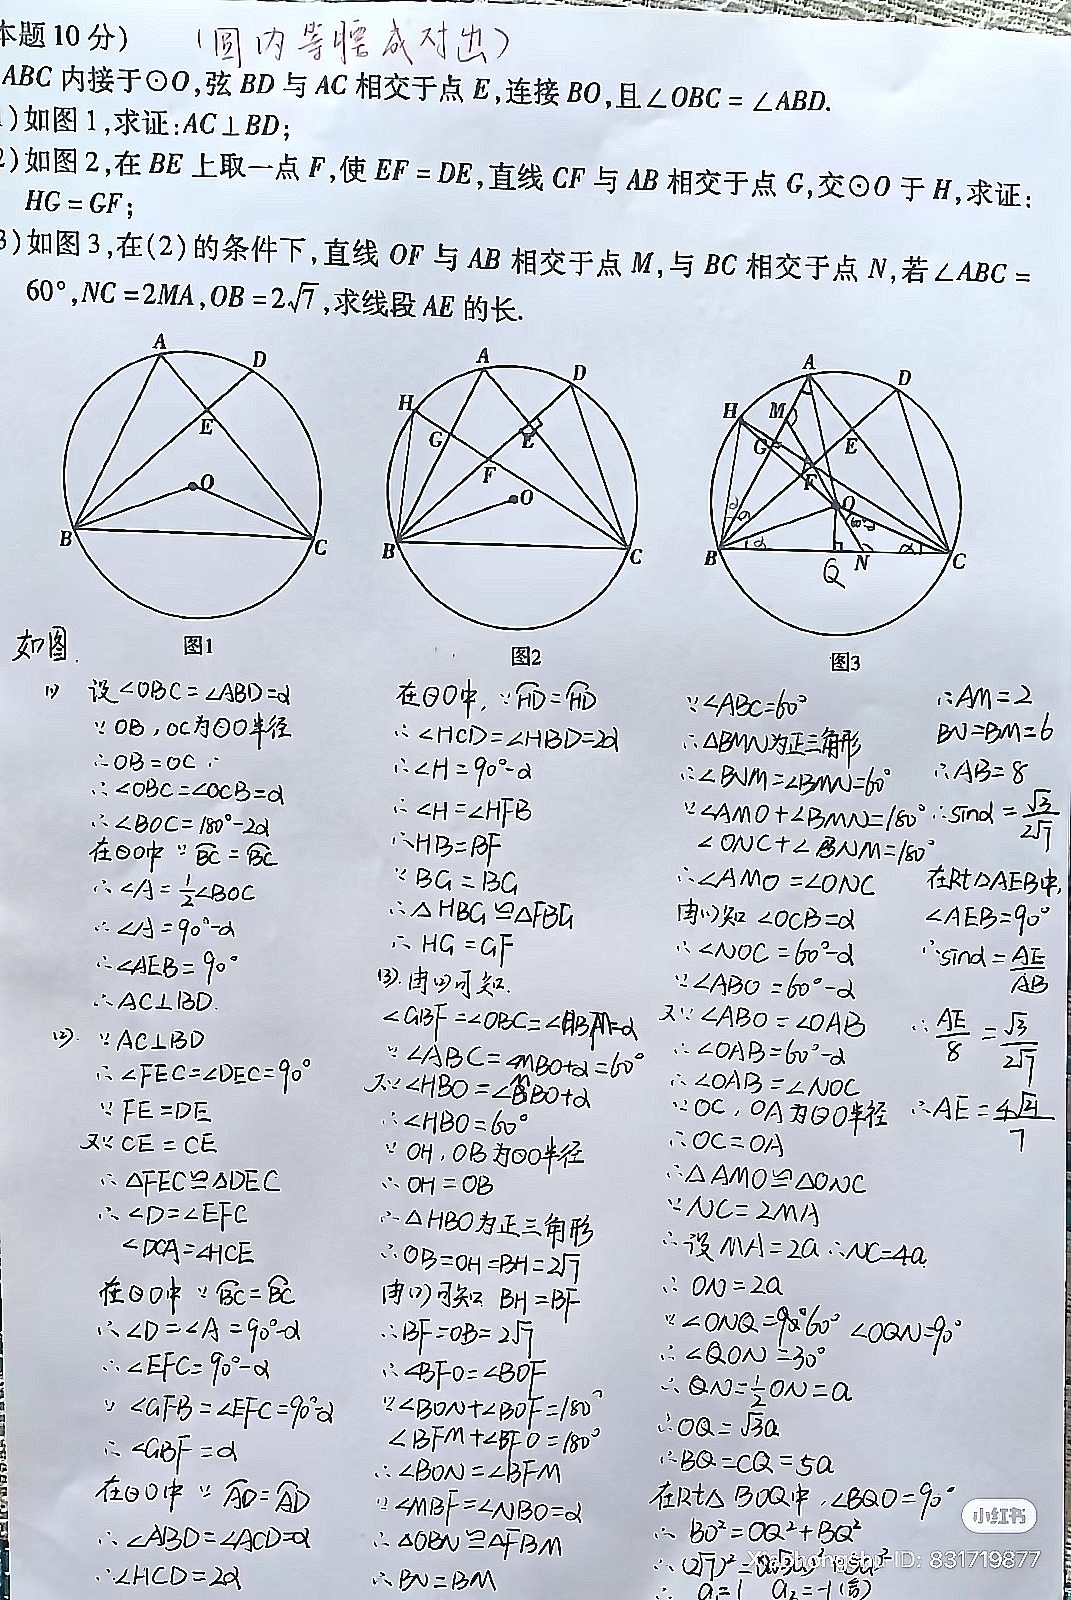 本题10分) (圆内等腰成对出)
ABC内接于⊙O,弦BD与AC相交于点E,连接BO,且∠OBC=∠ABD.
1)如图1,求证:AC⊥BD;
2)如图2,在BE上取一点F,使EF=DE,直线CF与AB相交于点G,交⊙O于H,求证:
HG=GF;
3)如图3,在(2)的条件下,直线OF与AB相交于点M,与BC相交于点N,若∠ABC=
60°,NC=2MA,OB=2√7,求线段AE的长.
A
D
E
O
B
C
图1
A
D
H
G
E
F
O
B
C
图2
A
D
H
M
G
E
F
O
B
Q
N
C
图3
如图.
(1) 设∠OBC=∠ABD=α
∵OB,OC为⊙O半径
∴OB=OC
∴∠OBC=∠OCB=α
∴∠BOC=180°-2α
在⊙O中 ∵BC=BC
∴∠A=1/2∠BOC
∴∠A=90°-α
∴∠AEB=90°
∴AC⊥BD.
(2). ∵AC⊥BD
∴∠FEC=∠DEC=90°
∵FE=DE
又∵CE=CE
∴△FEC≌△DEC
∴∠D=∠EFC
∠DCA=∠HCE
在⊙O中 ∵BC=BC
∴∠D=∠A=90°-α
∴∠EFC=90°-α
∵∠GFB=∠EFC=90°-α
∴∠GBF=α
在⊙O中 ∵AD=AD
∴∠ABD=∠ACD=α
∴∠HCD=2α
在⊙O中,∵HD=HD
∴∠HCD=∠HBD=2α
∴∠H=90°-α
∴∠H=∠HFB
∴HB=BF
∵BG=BG
∴△HBG≌△FBG
∴HG=GF
(3).由(2)可知.
∠GBF=∠OBC=∠HBM=α
∵∠ABC=∠MBO+α=60°
又∵∠HBO=∠MBO+α
∴∠HBO=60°
∵OH,OB为⊙O半径
∴OH=OB
∴△HBO为正三角形
∴OB=OH=BH=2√7
由(2)可知 BH=BF
∴BF=OB=2√7
∴∠BFO=∠BOF
∵∠BON+∠BOF=180°
∠BFM+∠BFO=180°
∴∠BON=∠BFM
∵∠MBF=∠NBO=α
∴△OBN≌△FBM
∴BN=BM
∵∠ABC=60°
∴△BMN为正三角形
∴∠BNM=∠BMN=60°
∵∠AMO+∠BMN=180°
∠ONC+∠BNM=180°
∴∠AMO=∠ONC
由(1)知 ∠OCB=α
∴∠NOC=60°-α
∵∠ABO=60°-α
又∵∠ABO=∠OAB
∴∠OAB=60°-α
∴∠OAB=∠NOC
∵OC,OA为⊙O半径
∴OC=OA
∴△AMO≌△ONC
∵NC=2MA
∴设MA=2a ∴NC=4a
∴ON=2a
∵∠ONQ=60° ∠OQN=90°
∴∠QON=30°
∴QN=1/2ON=a
∴OQ=√3a
∴BQ=CQ=5a
在Rt△BOQ中,∠BQO=90°
∴BO²=OQ²+BQ²
∴a₁=1 a₂=-1(舍)
∴AM=2
BN=BM=6
∴AB=8
∴sinα=√3/2√7
在Rt△AEB中,
∠AEB=90°
∴sinα=AE/AB
∴AE/8=√3/2√7
∴AE=4√21/7
小红书
XiaoHongshu-ID: 831719877